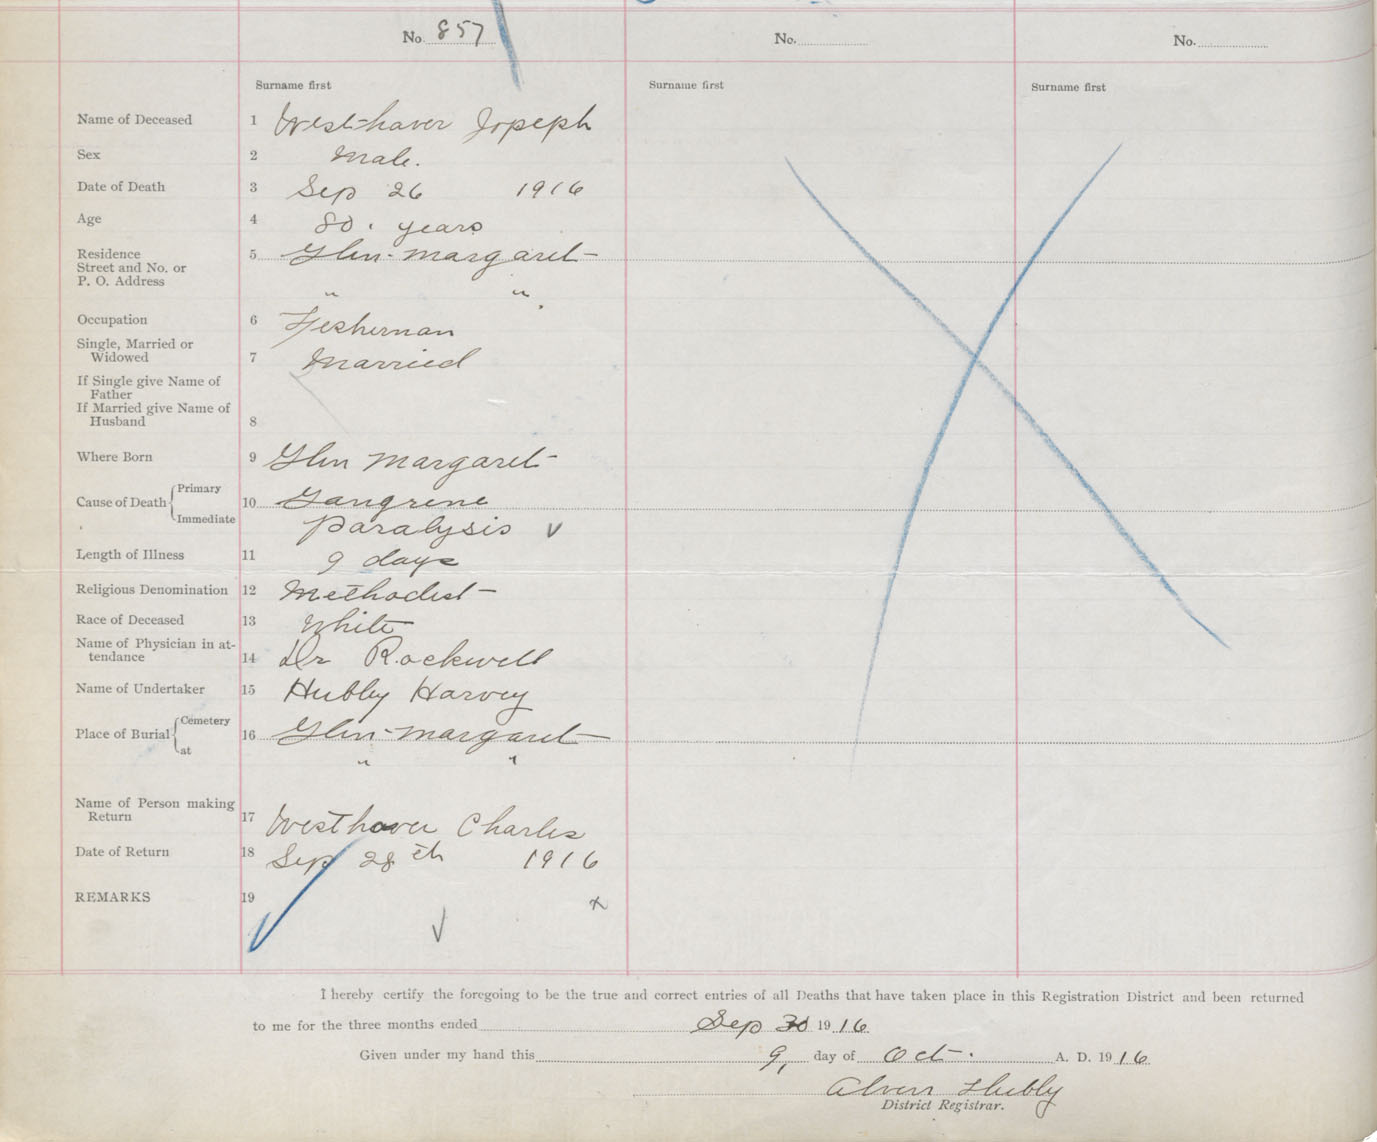 No. 857 No. No.
Surname first Surname first Surname first
Name of Deceased 1 Westhaver Joseph
Sex 2 Male.
Date of Death 3 Sep 26 1916
Age 4 80. years
Residence 5 Glen-Margaret
Street and No. or
P. O. Address " "
Occupation 6 Fisherman
Single, Married or
Widowed 7 Married
If Single give Name of
Father
If Married give Name of
Husband 8
Where Born 9 Glen Margaret
Primary
Cause of Death 10 Gangrene
Immediate Paralysis
Length of Illness 11 9 days
Religious Denomination 12 Methodist
Race of Deceased 13 White
Name of Physician in at-
tendance 14 Dr Rockwell
Name of Undertaker 15 Hubley Harvey
Cemetery
Place of Burial 16 Glen-Margaret
at " "
Name of Person making
Return 17 Westhaver Charles
Date of Return 18 Sep 28th 1916
REMARKS 19
I hereby certify the foregoing to be the true and correct entries of all Deaths that have taken place in this Registration District and been returned
to me for the three months ended Sep 30 1916
Given under my hand this 9, day of Oct. A. D. 1916
Hubly
District Registrar.